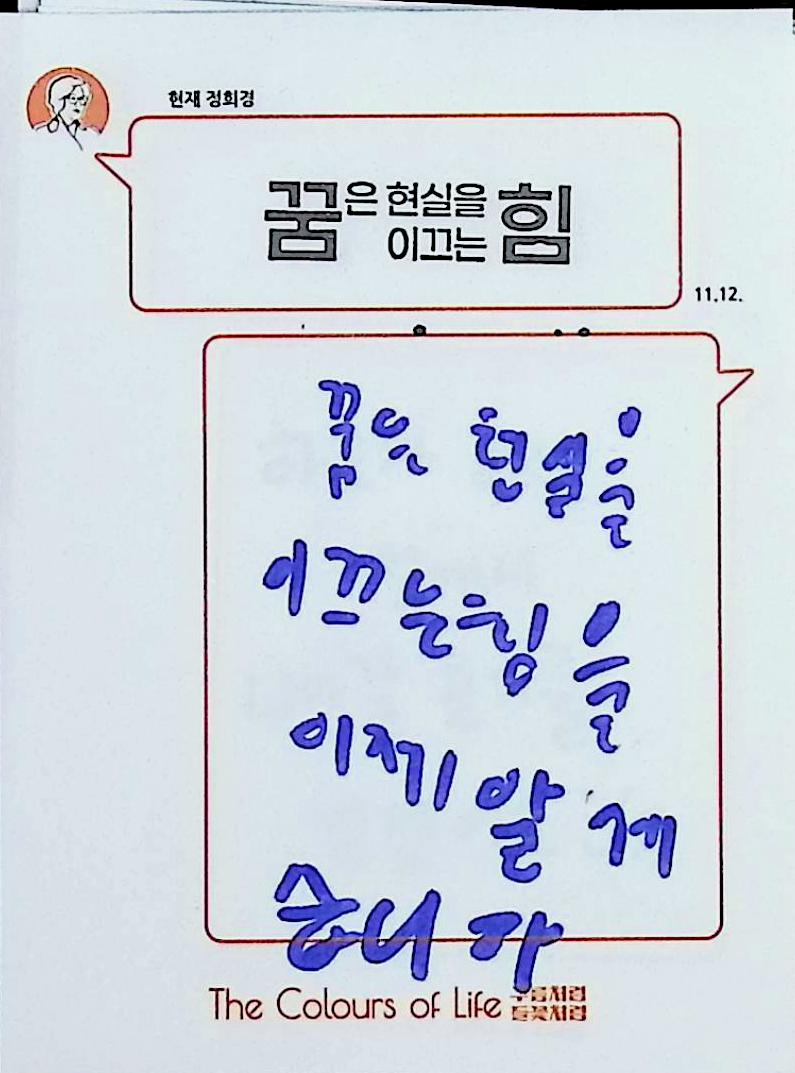 현재 정희경
꿈은 현실을
이끄는 힘
11.12.
꿈은 현실을
이끄는 힘을
이제 알 게
습니다
The Colours of Life 구름처럼
들꽃처럼